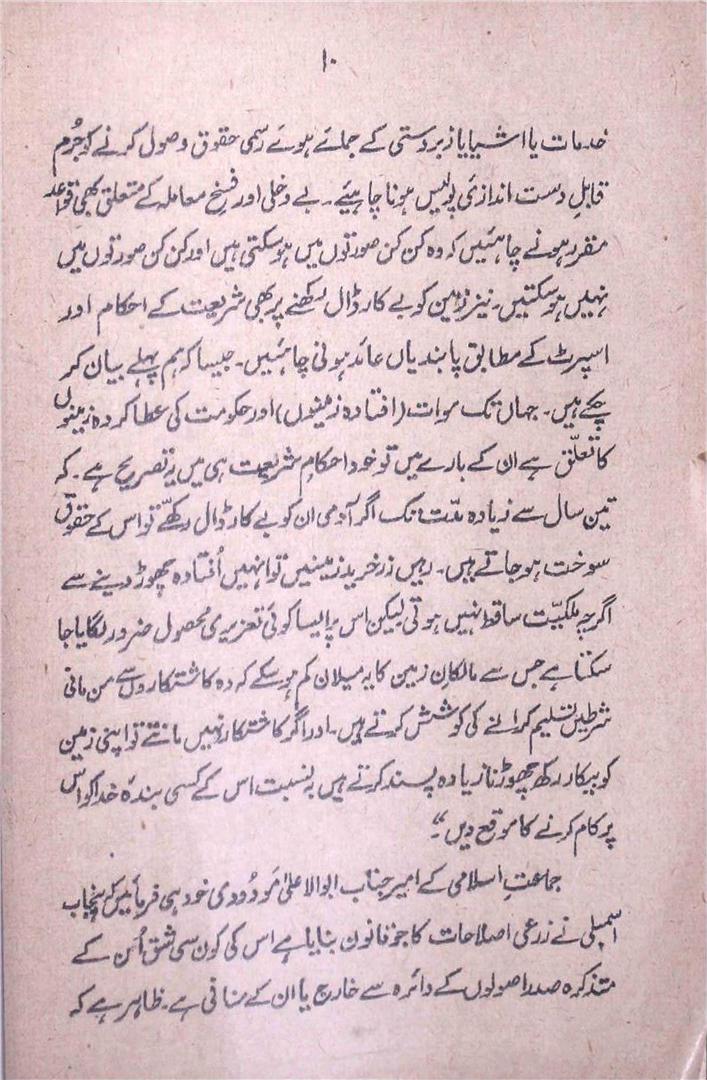 ۱۰
خدمات یا اشیا یا زبردستی کے جمائے ہوئے رسمی حقوق وصول کرنے کو جُرم
قابلِ دست اندازئ پولیس ہونا چاہیئے۔ بے دخلی اور فسخِ معاملہ کے متعلق بھی قواعد
مقرر ہونے چاہئیں کہ وہ کن کن صورتوں میں ہو سکتی ہیں اور کن کن صورتوں میں
نہیں ہو سکتیں۔ نیز زمین کو بے کار ڈال رکھنے پر بھی شریعت کے احکام اور
اسپرٹ کے مطابق پابندیاں عائد ہونی چاہئیں۔ جیسا کہ ہم پہلے بیان کر
چکے ہیں۔ جہاں تک موات (افتادہ زمینوں) اور حکومت کی عطا کردہ زمینوں
کا تعلّق ہے ان کے بارے میں تو خود احکامِ شریعت ہی میں یہ تصریح ہے۔ کہ
تین سال سے زیادہ مدّت تک اگر آدمی ان کو بے کار ڈال رکھّے تو اس کے حقوق
سوخت ہو جاتے ہیں۔ رہیں زر خرید زمینیں تو انہیں اُفتادہ چھوڑ دینے سے
اگرچہ ملکیّت ساقط نہیں ہوتی لیکن اس پر ایسا کوئی تعزیری محصول ضرور لگایا جا
سکتا ہے جس سے مالکانِ زمین کا یہ میلان کم ہو سکے کہ وہ کاشتکاروں سے من مانی
شرطیں تسلیم کرانے کی کوشش کرتے ہیں۔ اور اگر کاشتکار نہیں مانتے تو اپنی زمین
کو بیکار رکھ چھوڑنا زیادہ پسند کرتے ہیں بہ نسبت اس کے کسی بندۂ خدا کو اس
پر کام کرنے کا موقع دیں"۔
جماعتِ اسلامی کے امیر جناب ابوالاعلیٰ مَودُودی خود ہی فرمائیں کہ پنجاب
اسمبلی نے زرعی اصلاحات کا جو قانون بنایا ہے اس کی کون سی شق اُن کے
متذکرہ صدر اصولوں کے دائرہ سے خارج یا ان کے منافی ہے۔ ظاہر ہے کہ